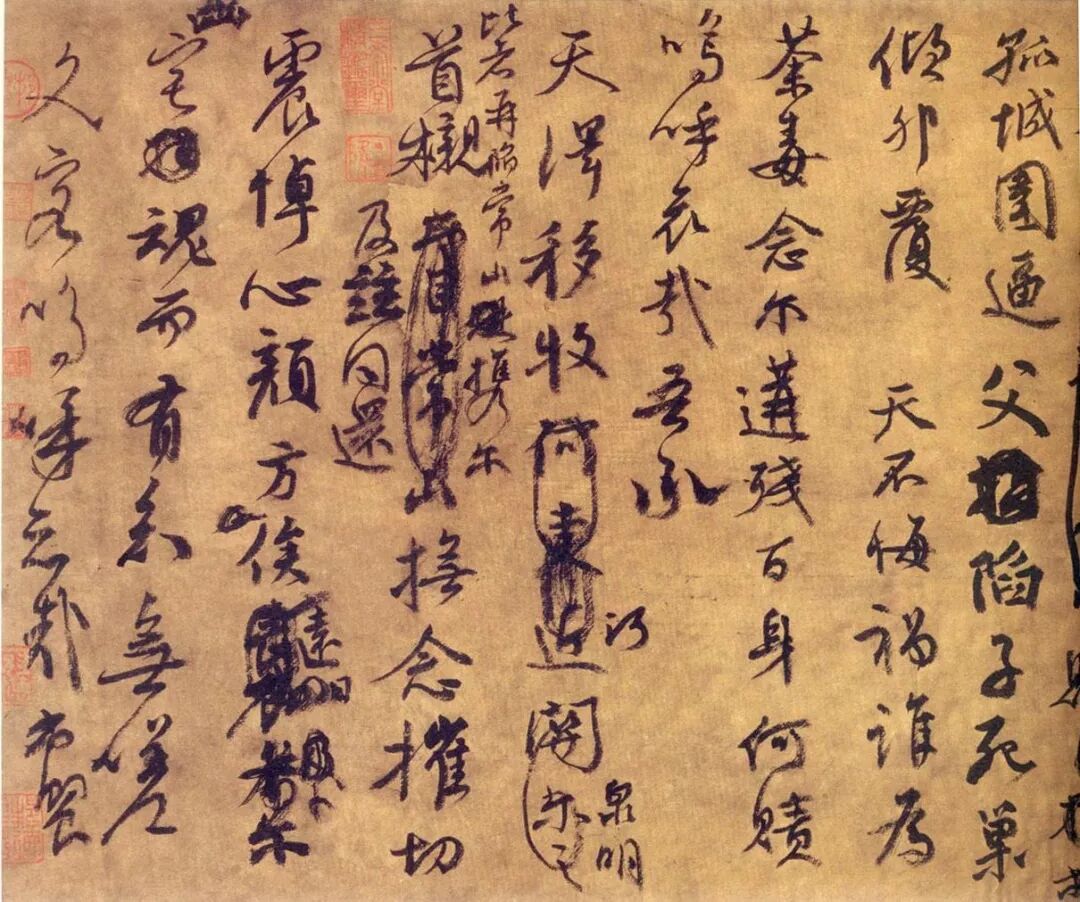 孤城圍逼父陷子死巢
傾卵覆天不悔禍誰為
荼毒念尔遘殘百身何贖
嗚呼哀哉吾承
天澤移牧河東近關尔之
河
泉明
比者再陷常山携尔
首櫬常山撫念摧切
及茲同還
震悼心顏方俟尔
遠日
幽
宅魂而有知無嗟
久客嗚呼哀哉尚饗